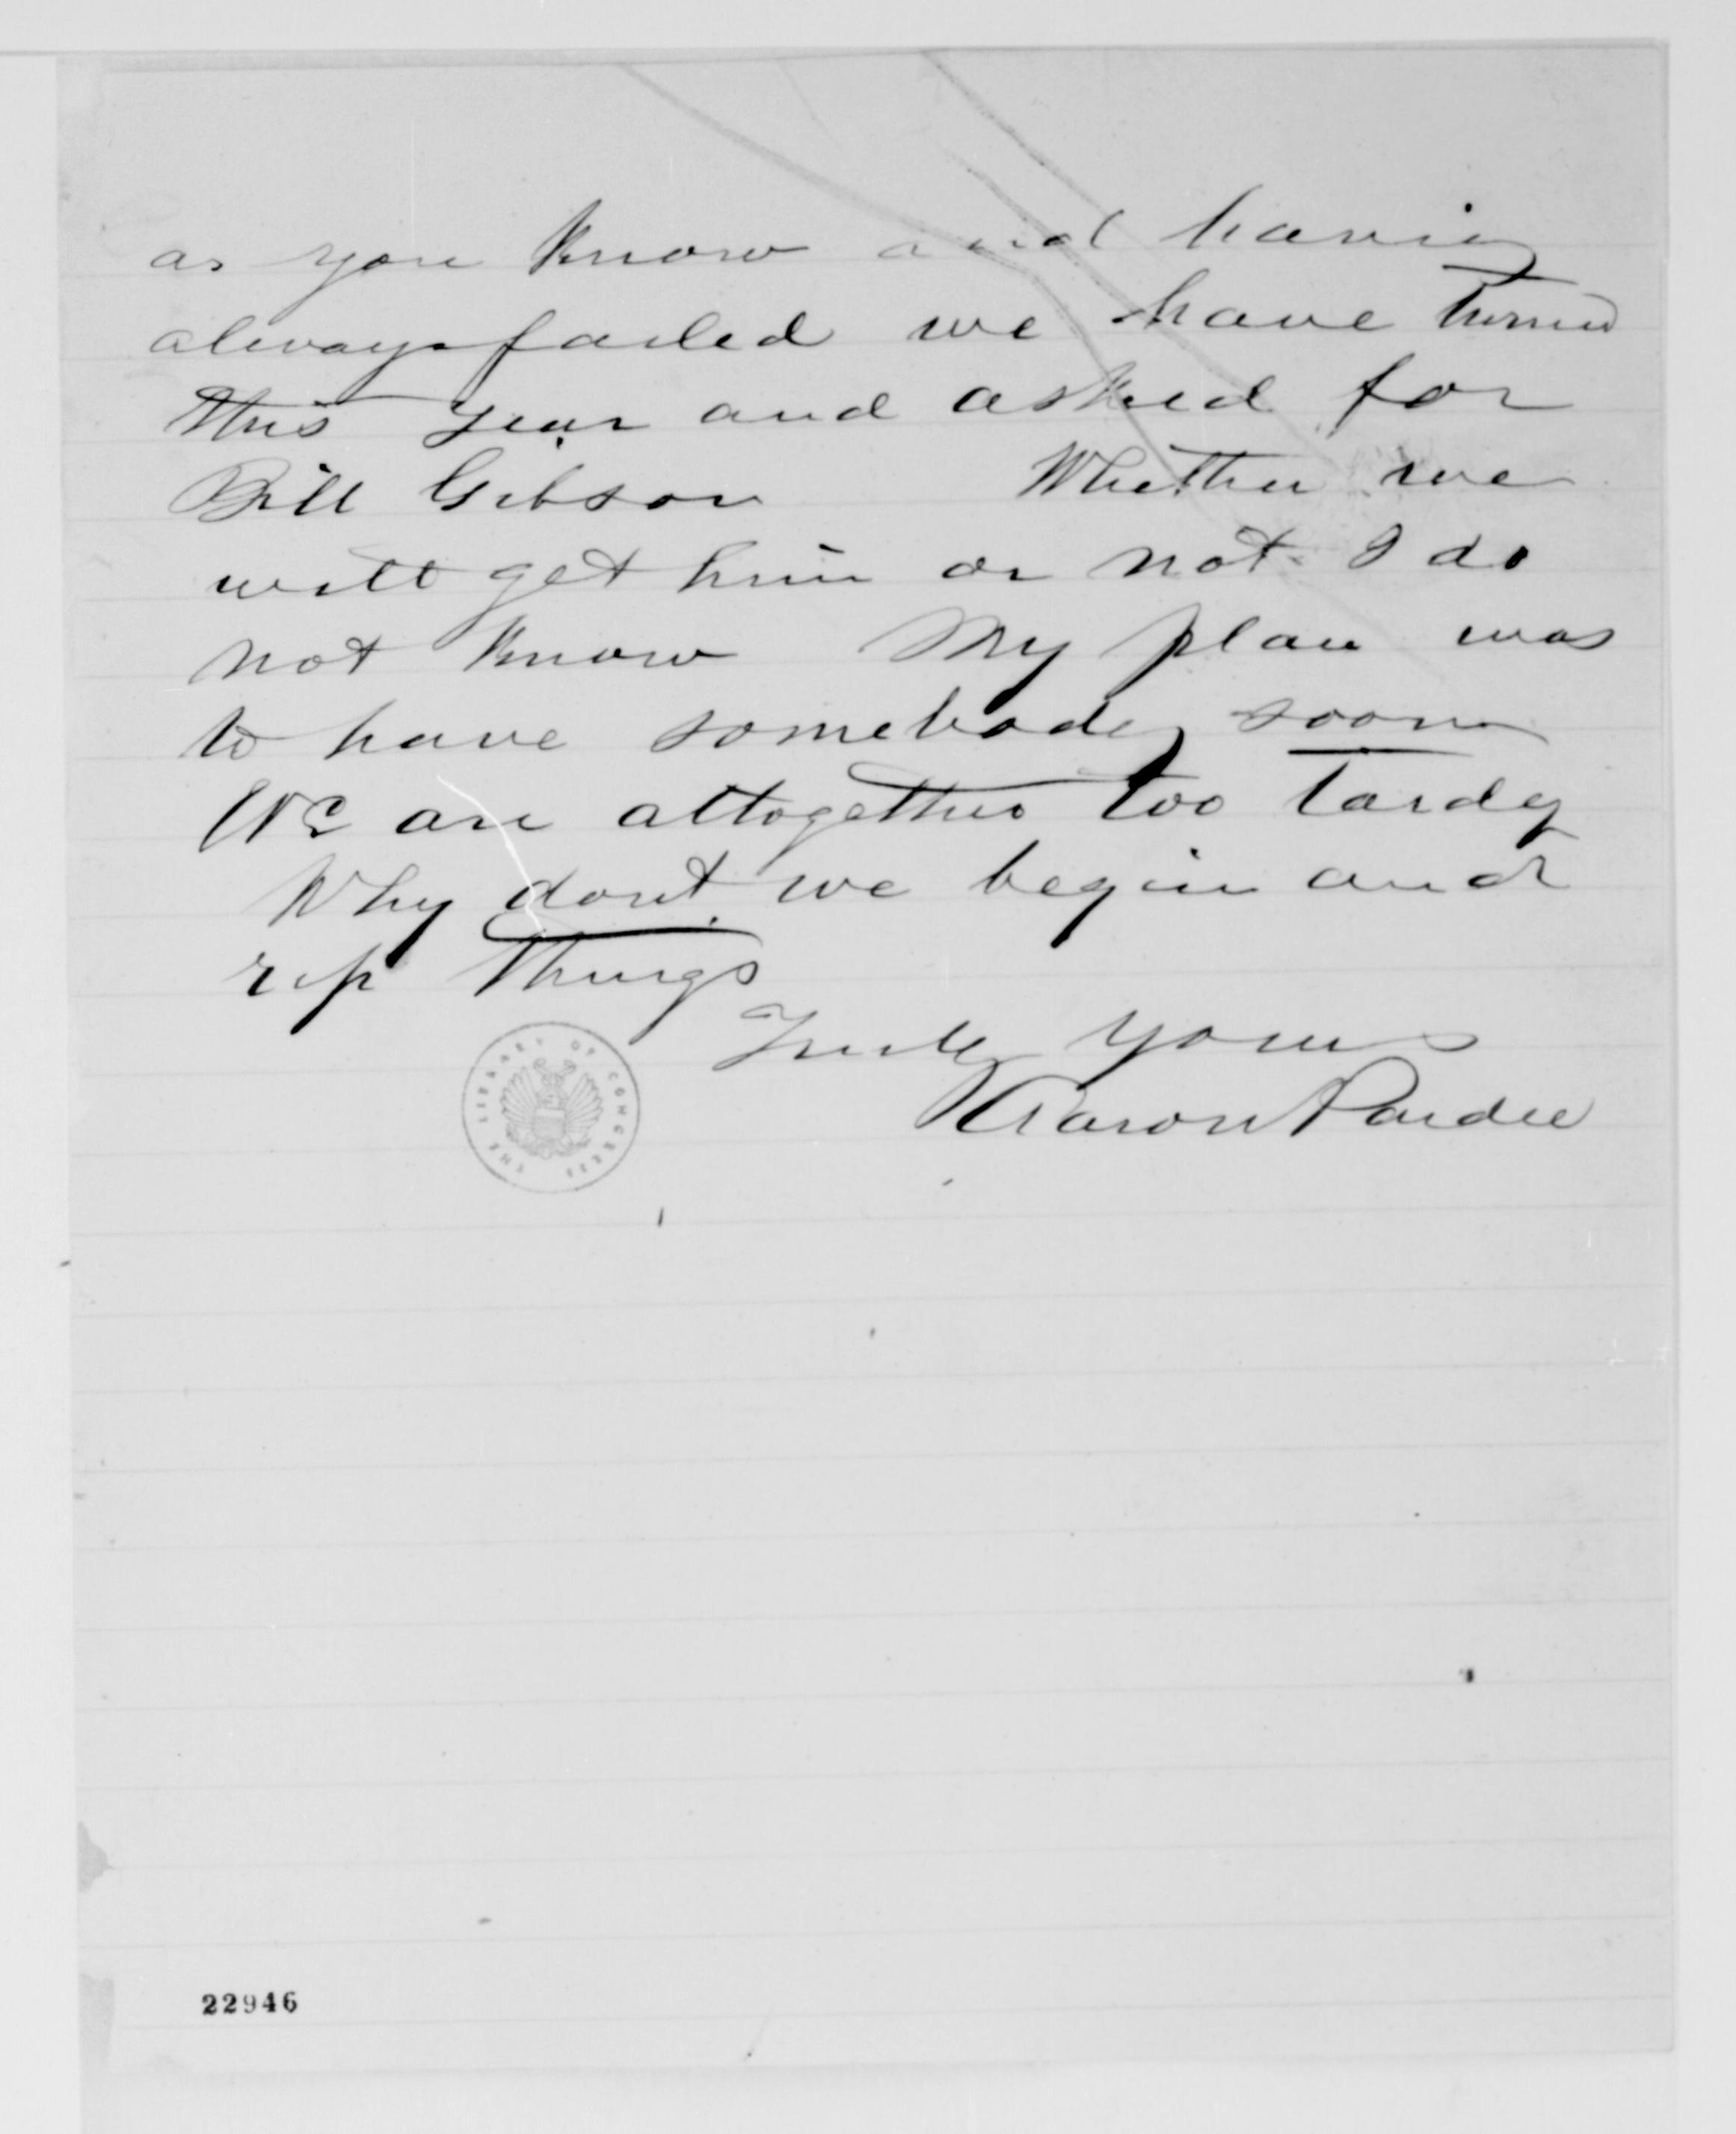 as you know and having
always failed we have turned
this year and asked for
Bill Gibson Whether we
will get him or not I do
not know My plan was
to have somebody soon
We are altogether too tardy
Why dont we begin and
rip things
Truly yours
Aaron Pardee
THE LIBRARY OF CONGRESS
22946